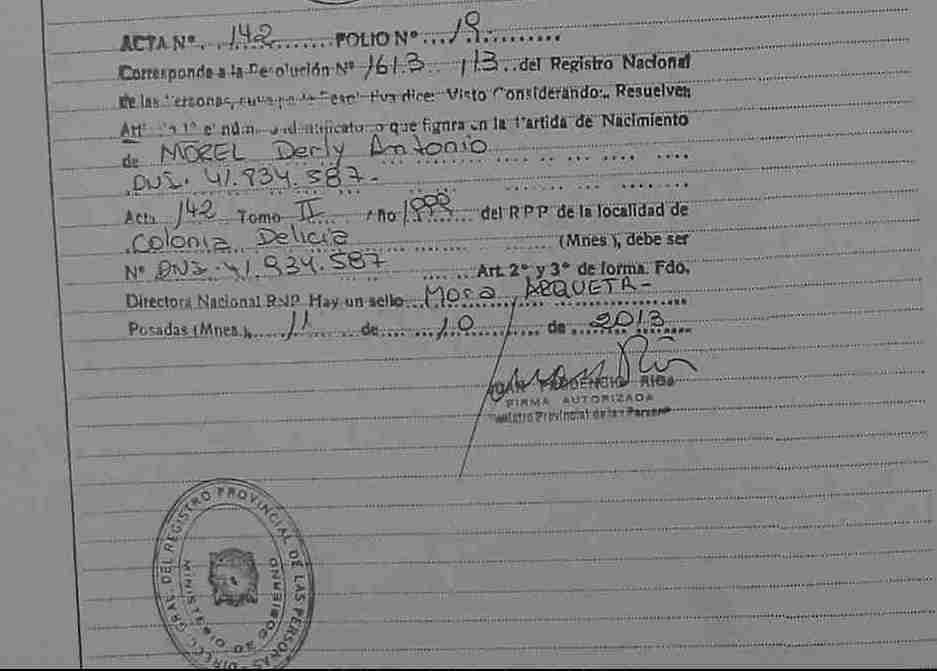 ACTA Nº 142 FOLIO Nº 19
Corresponde a la Resolución Nº 1613 113 del Registro Nacional
de las Personas, cuya parte dice: Visto Considerando: Resuelven
Art. 1º el que figura en la Partida de Nacimiento
de MOREL Derly Antonio
DNI. 41.934.587.-
Acta 142 Tomo II Año 1999 del RPP de la localidad de
Colonia Delicia (Mnes), debe ser
Nº DNI. 41.934.587 Art. 2º y 3º de forma. Fdo.
Directora Nacional RNP. Hay un sello Mora ARQUETA-
Posadas (Mnes), 11 de 10 de 2013
RIOS
FIRMA AUTORIZADA
Registro Provincial de las Personas
DIRECC. GRAL DEL REGISTRO PROVINCIAL DE LAS PERSONAS
MINISTERIO DE GOBIERNO